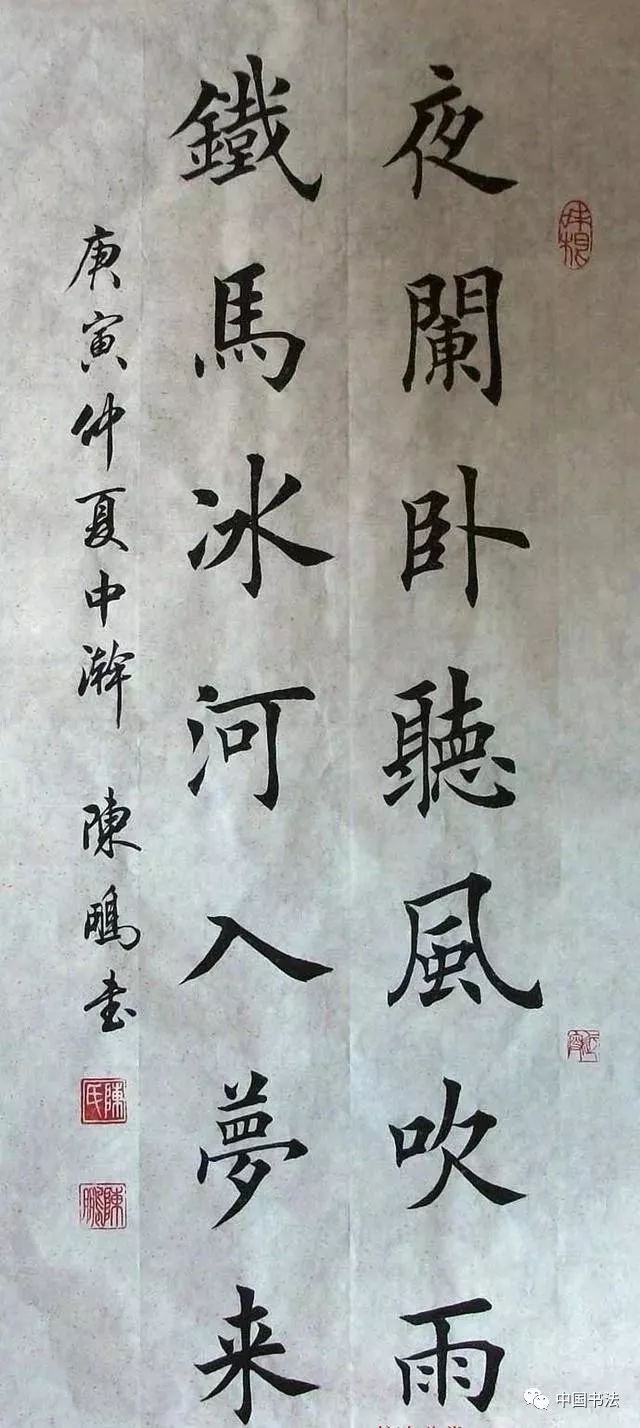 夜闌卧聽風吹雨
鐵馬冰河入夢来
庚寅仲夏中澣 陳鵬书
陳氏
陳鵬
中国书法